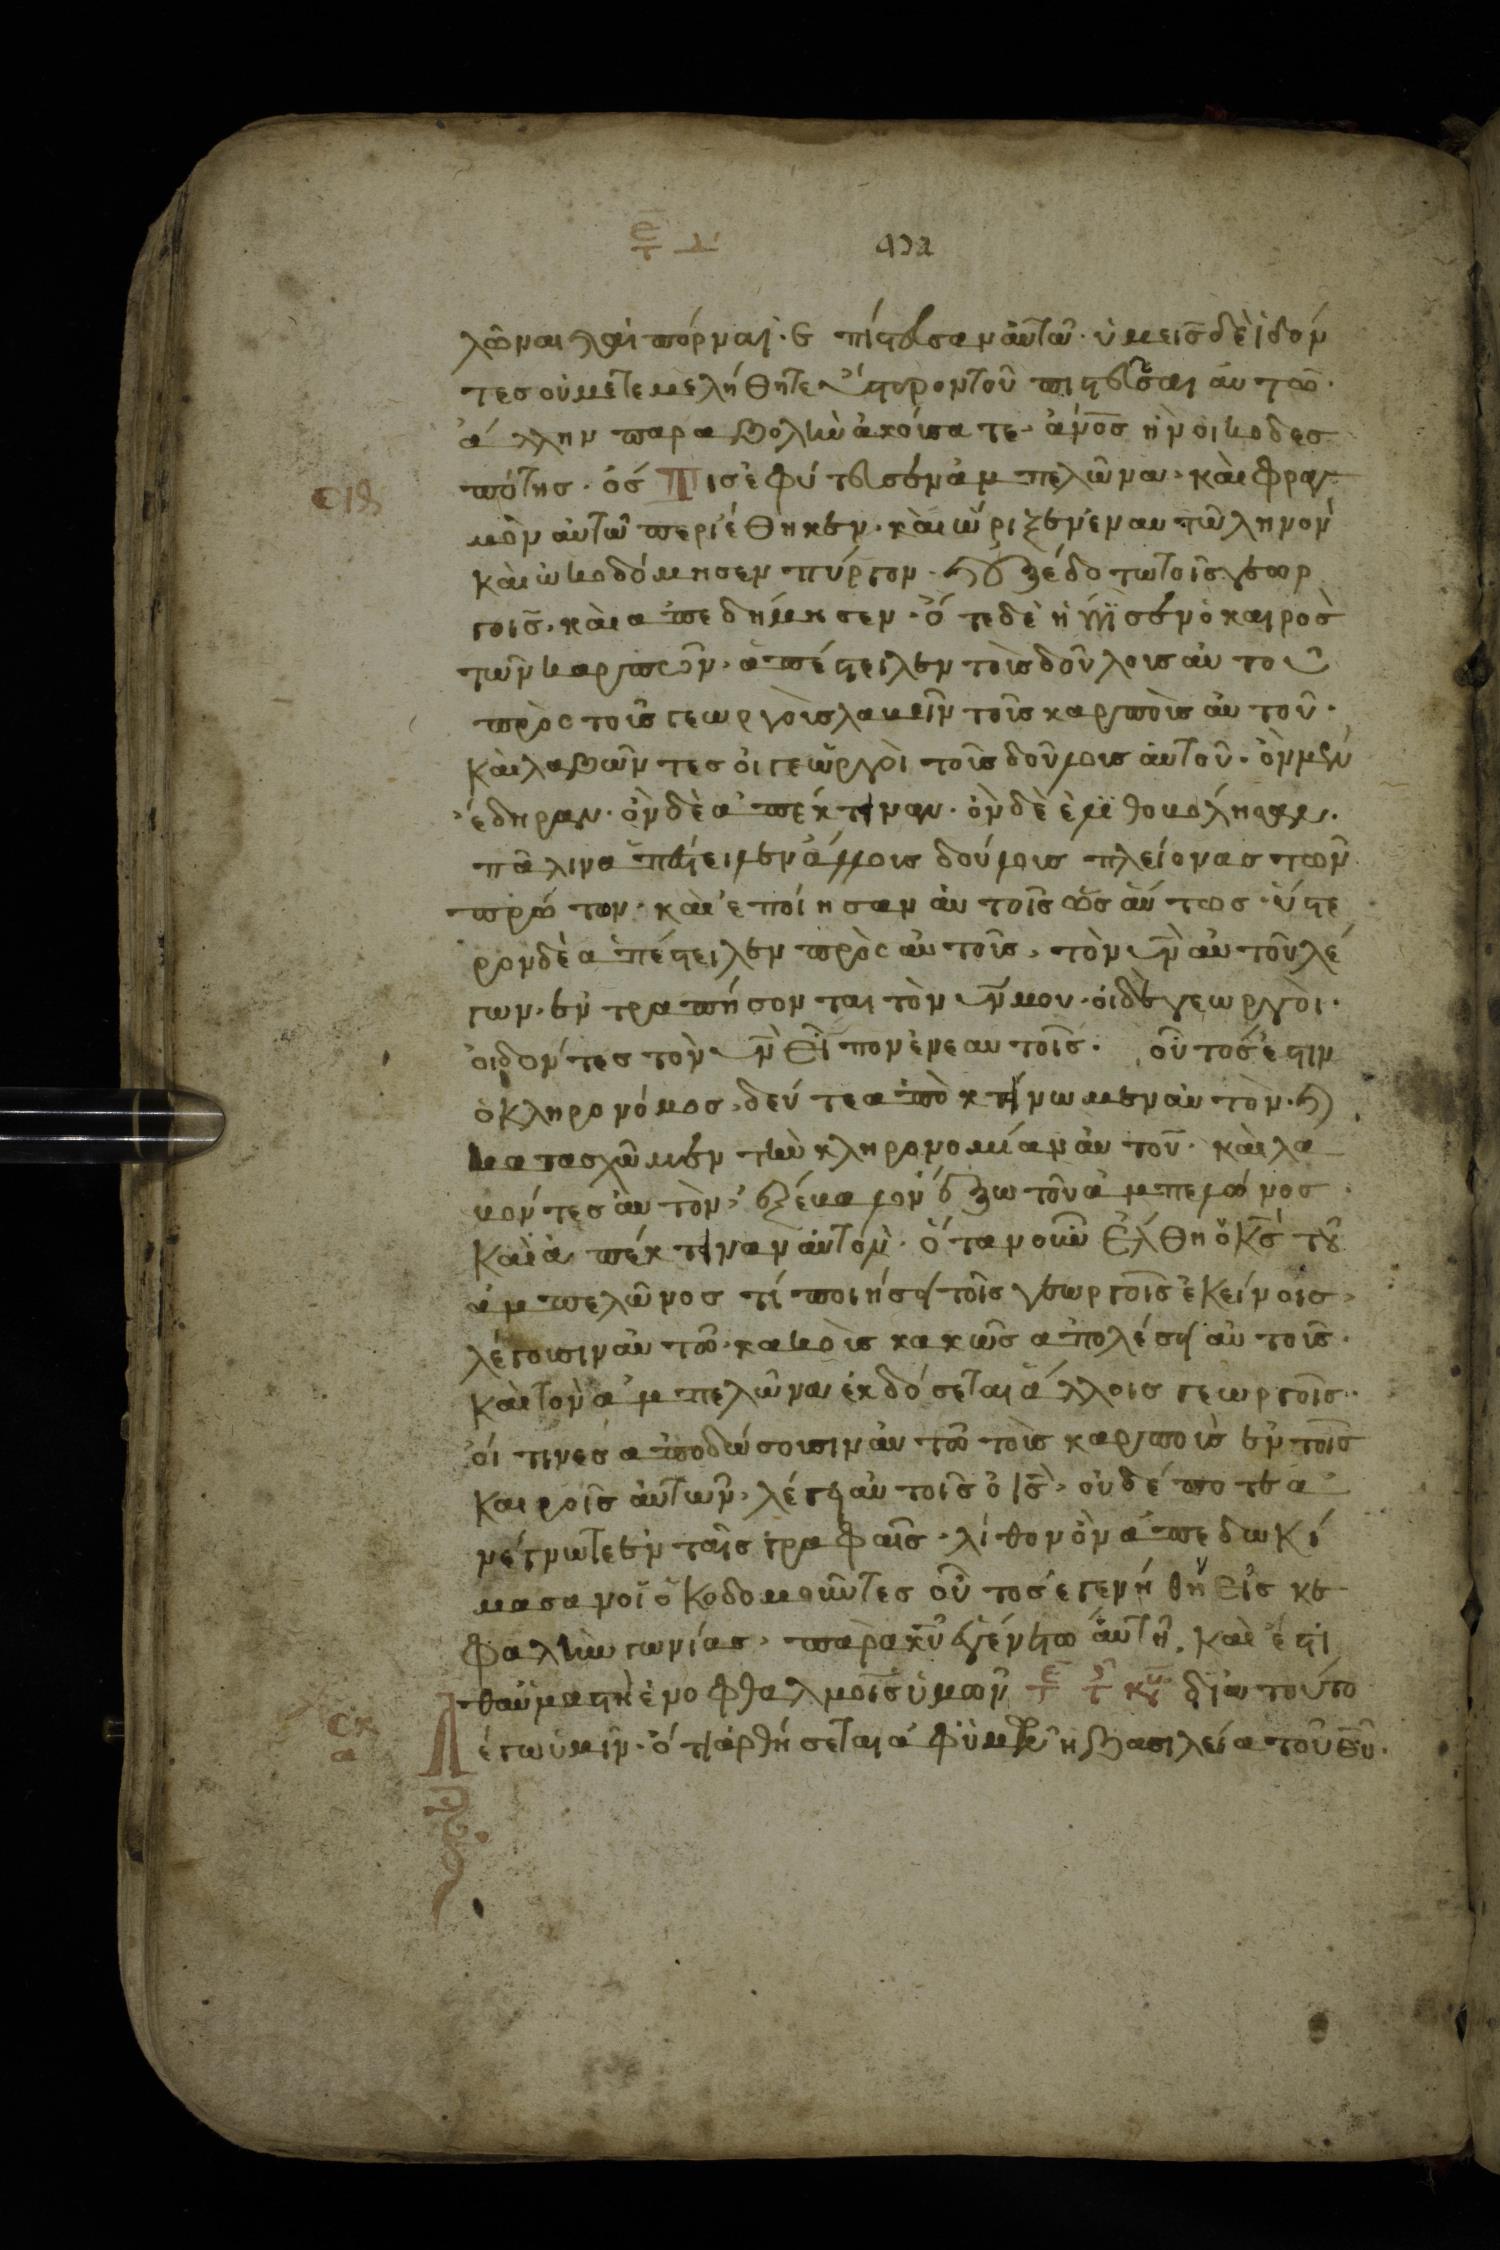 λῶναι καὶ αἱ πόρναι. ἐπίστευσαν αὐτῶ. ὑμεῖς δὲ ἰδόν
τες οὐ μετεμελήθητε ὕστερον τοῦ πιστεῦσαι αὐτῶ.
ἄλλην παραβολὴν ἀκούσατε. ἄνος ἦν οἰκοδεσ
πότης. ὅς Πισ ἐφύτευσεν ἀμπελῶνα. καὶ φραγ
μὸν αὐτῶ περιέθηκεν. καὶ ὤριξεν ἐν αυτῶ ληνον
καὶ ὠκοδόμησεν πύργον. καὶ ἐξέδοτω τοῖς γεωρ
γοις. καὶ απεδήμησεν. ὅτε δὲ ἤγγισεν ὁ καιρὸς
τῶν καρπῶν. ἀπέστειλεν τοὺς δούλους αὐτοῦ
πρὸς τοὺς γεωργοὺς λαβεῖν τοὺς καρποὺς αὐτοῦ.
καὶ λαβῶντες οἱ γεωργοὶ τοὺς δούλους αὐτοῦ. ὃν μὲν
ἔδηραν. ὃν δὲ ἀπέκτειναν. ὃν δὲ ἐλιθοβολησαν.
πάλιν ἀπέστειλεν ἄλλους δούλους πλείονας τῶν
πρώτων. καὶ ἐποίησαν αὐτοῖς ὡσαύτως. ὕστε
ρον δὲ ἀπέστειλεν πρὸς αὐτοὺς, τὸν υν αὐτοῦ λέ
γων. ἐντραπήσονται τὸν υν μου. οἱ δὲ γεωργοὶ.
οιδόντες τὸν υν Εἶπον ἐν εαυτοῖς. οὗτος ἐστιν
ὁ κληρονόμος, δεύτε ἀποκτείνωμεν αὐτὸν. καὶ
κατασχῶμεν τὴν κληρονομίαν αὐτοῦ. καὶ λα
βόντες αὐτὸν, ἐξέβαλον ἔξω τοῦ ἀμπελῶνος.
Καὶ ἀπέκτειναν αὐτόν. ὅταν οὖν Ἐλθη ὁ κς τοῦ
ἀμπελῶνος τί ποιήσει τοῖς γεωργοῖς ἐκείνοις,
λέγουσιν αὐτῶ. κακοὺς κακῶς ἀπολέσει αὐτοὺς.
καὶ τὸν ἀμπελῶνα ἐκδόσεται ἄλλοις γεωργοῖς.
οἵ τινες ἀποδώσουσιν αὐτῶ τοὺς καρποὺς ἐν τοῖς
καιροῖς αὐτῶν. λέγει αὐτοῖς ὁ ις. οὐδέποτε α
νέγνωτε ἐν ταῖς γραφαῖς. λίθον ὃν ἀπεδωκί
μασαν οἱ οκοδομοῦντες οὗτος ἐγενήθη Εἰς κε
φαλὴν γωνίας. παρὰ κυ ἐγένετω αὕτη. καὶ ἔστι
θαῦμαστὴ ἐν οφθαλμοῖς ὑμῶν διὰ τούτο
λέγω ὑμῖν. ὅτι ἀρθήσεται ἀφ ὑμῶν ἡ βασιλεία τοῦ θυ.